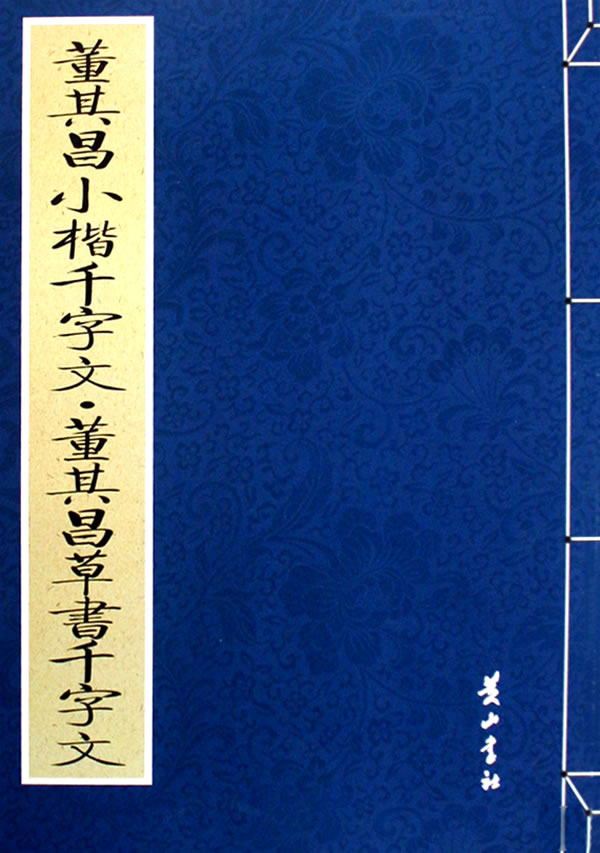 董其昌小楷千字文·董其昌草書千字文
黄山书社